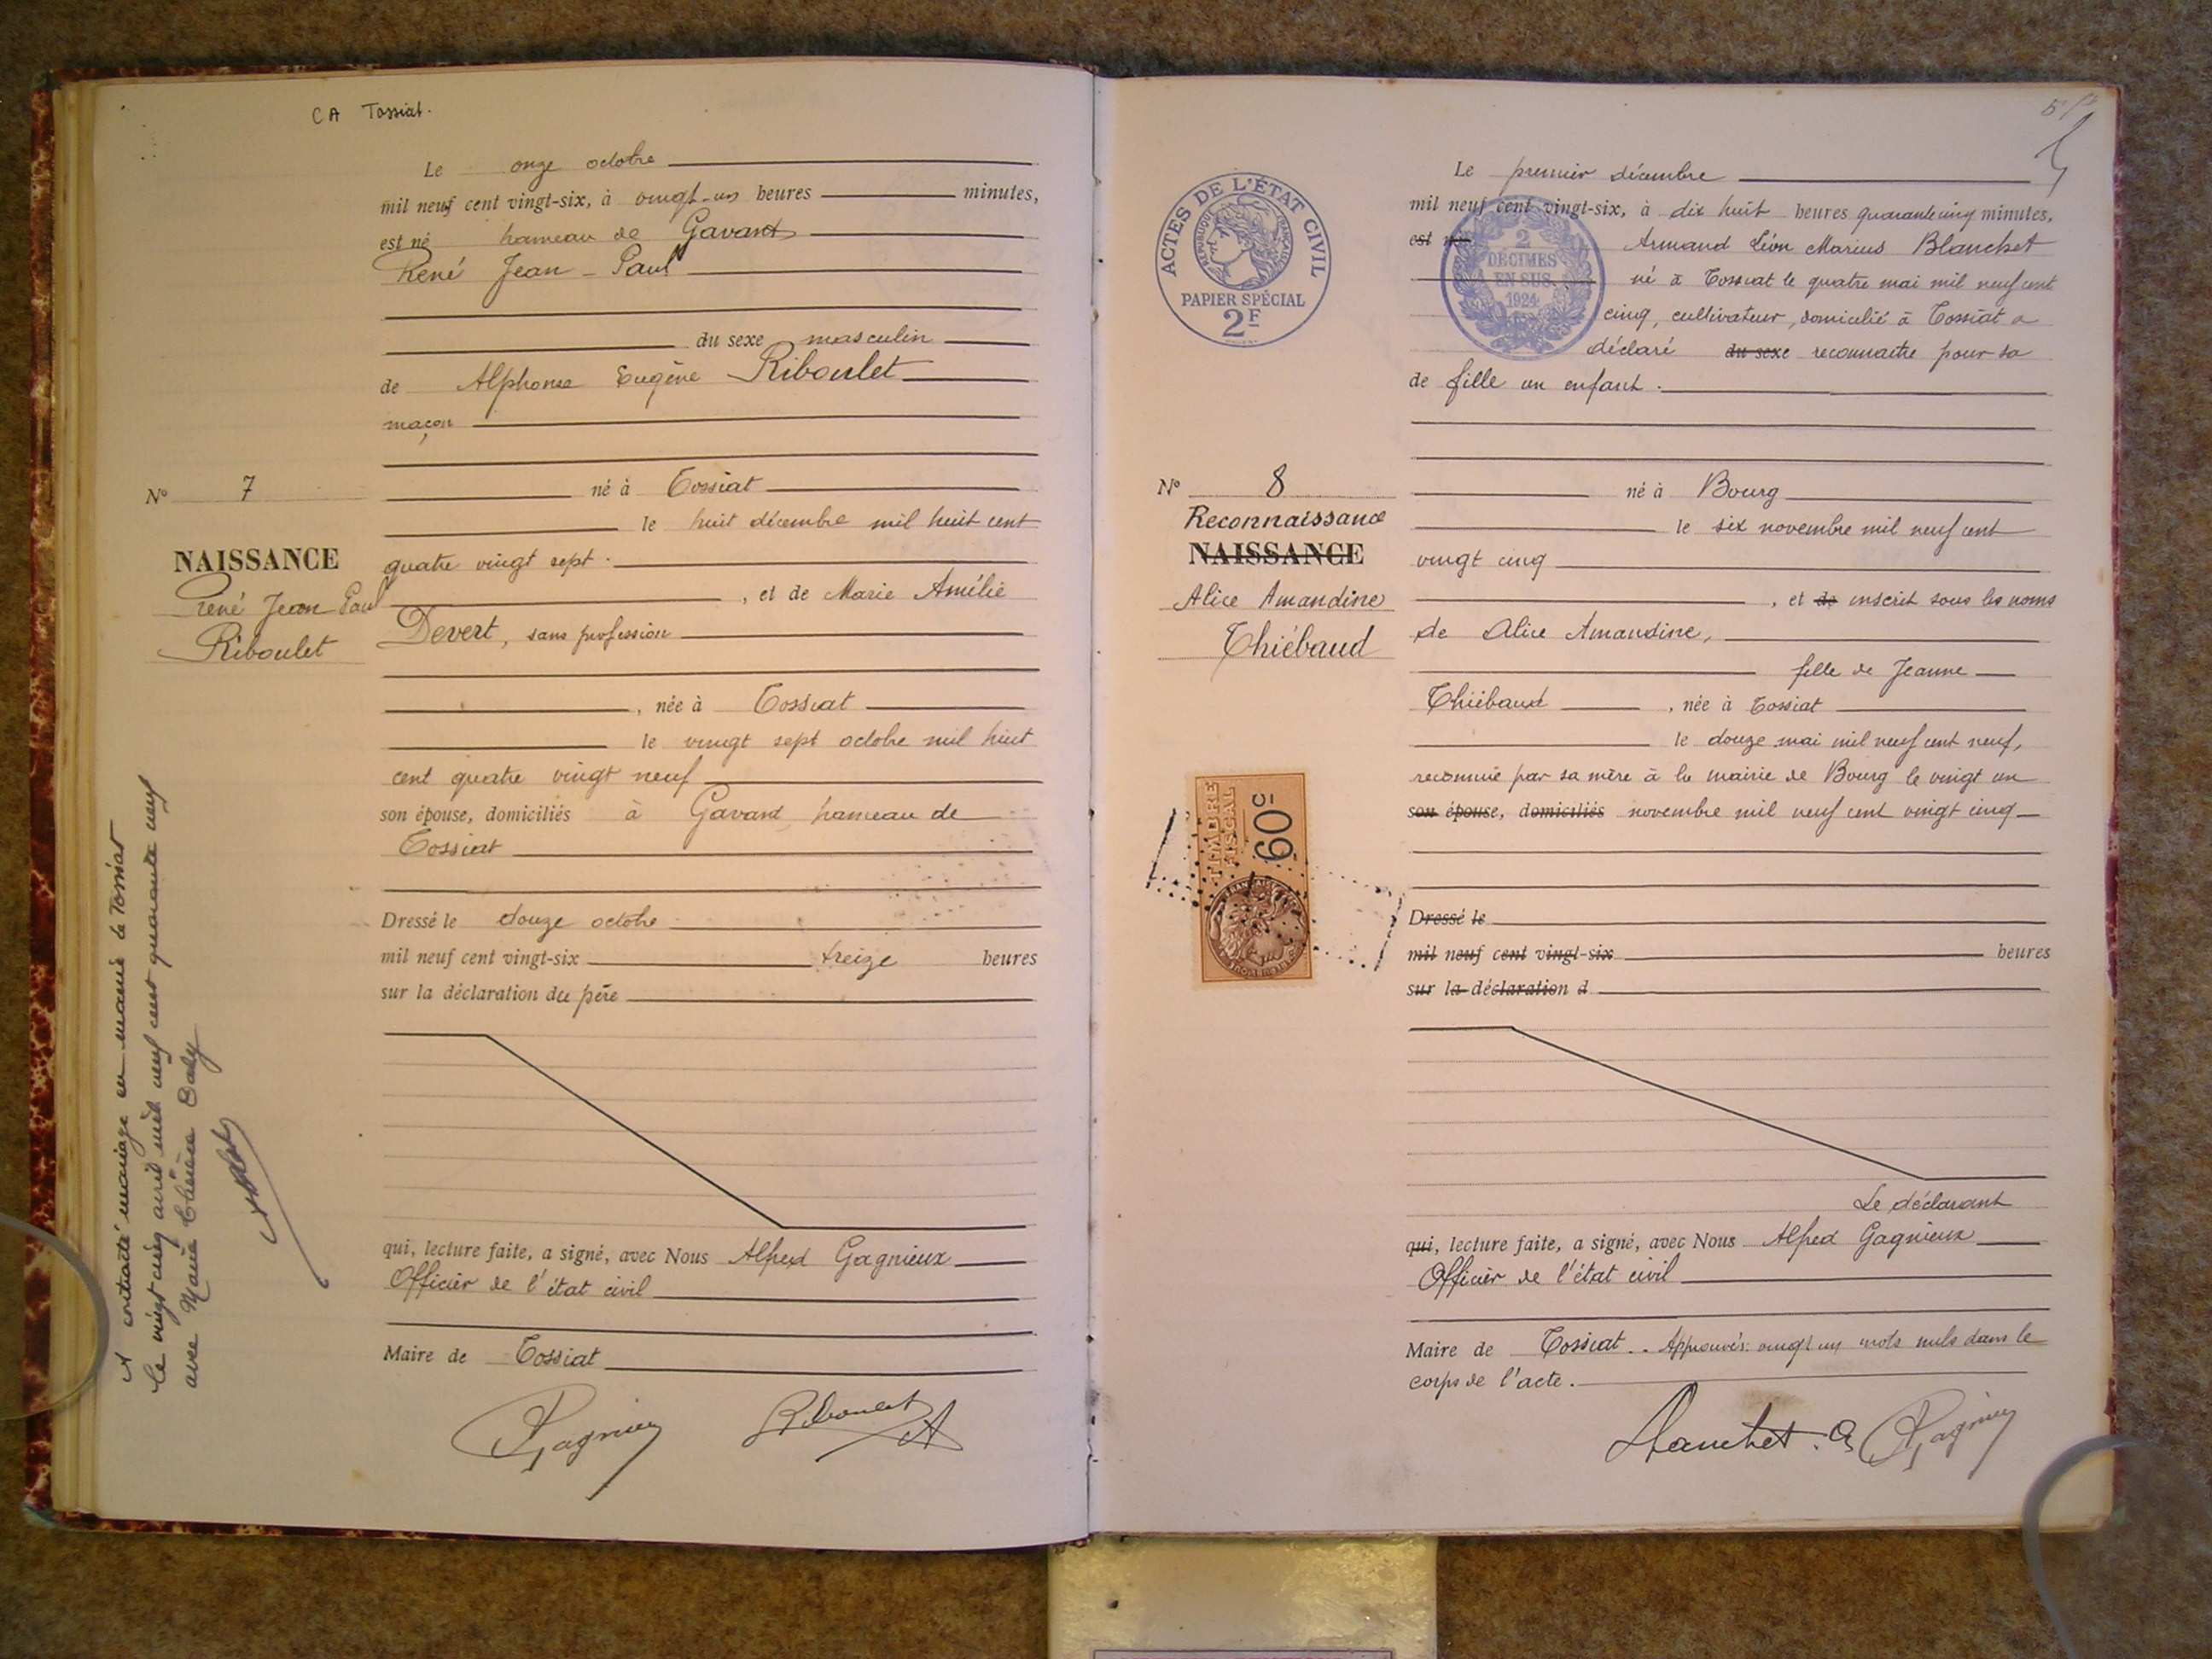 CA Tossiat.
Le onze octobre
mil neuf cent vingt-six, à vingt-un heures minutes,
est né hameau de Gavant
René Jean-Paul
du sexe masculin
de Alphonse Eugène Riboulet
maçon
né à Tossiat
le huit décembre mil huit cent
quatre vingt sept.
, et de Marie Amélie
Devert, sans profession
, née à Tossiat
le vingt sept octobre mil huit
cent quatre vingt neuf
son épouse, domiciliés à Gavant, hameau de
Tossiat
Dressé le douze octobre
mil neuf cent vingt-six treize heures
sur la déclaration du père
qui, lecture faite, a signé, avec Nous Alfred Gagnieux
Officier de l'état civil
Maire de Tossiat
Gagnieux
Riboulet A
N° 7
NAISSANCE
René Jean Paul
Riboulet
A contracté mariage en mairie de Tossiat
le vingt cinq avril mil neuf cent quarante neuf
avec Marie Thérèse
5
ACTES DE L'ÉTAT CIVIL
RÉPUBLIQUE FRANÇAISE
PAPIER SPÉCIAL
2F
2
DÉCIMES
EN SUS
1924
Le premier décembre
mil neuf cent vingt-six, à dix huit heures quarante cinq minutes,
est né Armand Léon Marius Blanchet
né à Tossiat le quatre mai mil neuf cent
cinq, cultivateur, domicilié à Tossiat a
déclaré du sexe reconnaitre pour sa
de fille un enfant.
né à Bourg
le six novembre mil neuf cent
vingt cinq
, et de inscrit sous les noms
de Alice Amandine,
fille de Jeanne
Thiébaud , née à Tossiat
le douze mai mil neuf cent neuf,
reconnue par sa mère à la mairie de Bourg le vingt un
son épouse, domiciliés novembre mil neuf cent vingt cinq
Dressé le
mil neuf cent vingt-six heures
sur la déclaration d
Le déclarant
qui, lecture faite, a signé, avec Nous Alfred Gagnieux
Officier de l'état civil
Maire de Tossiat.. Approuvés: vingt un mots nuls dans le
corps de l'acte.
Blanchet. A
Gagnieux
N° 8
Reconnaissance
NAISSANCE
Alice Amandine
Thiébaud
TIMBRE
FISCAL
60c